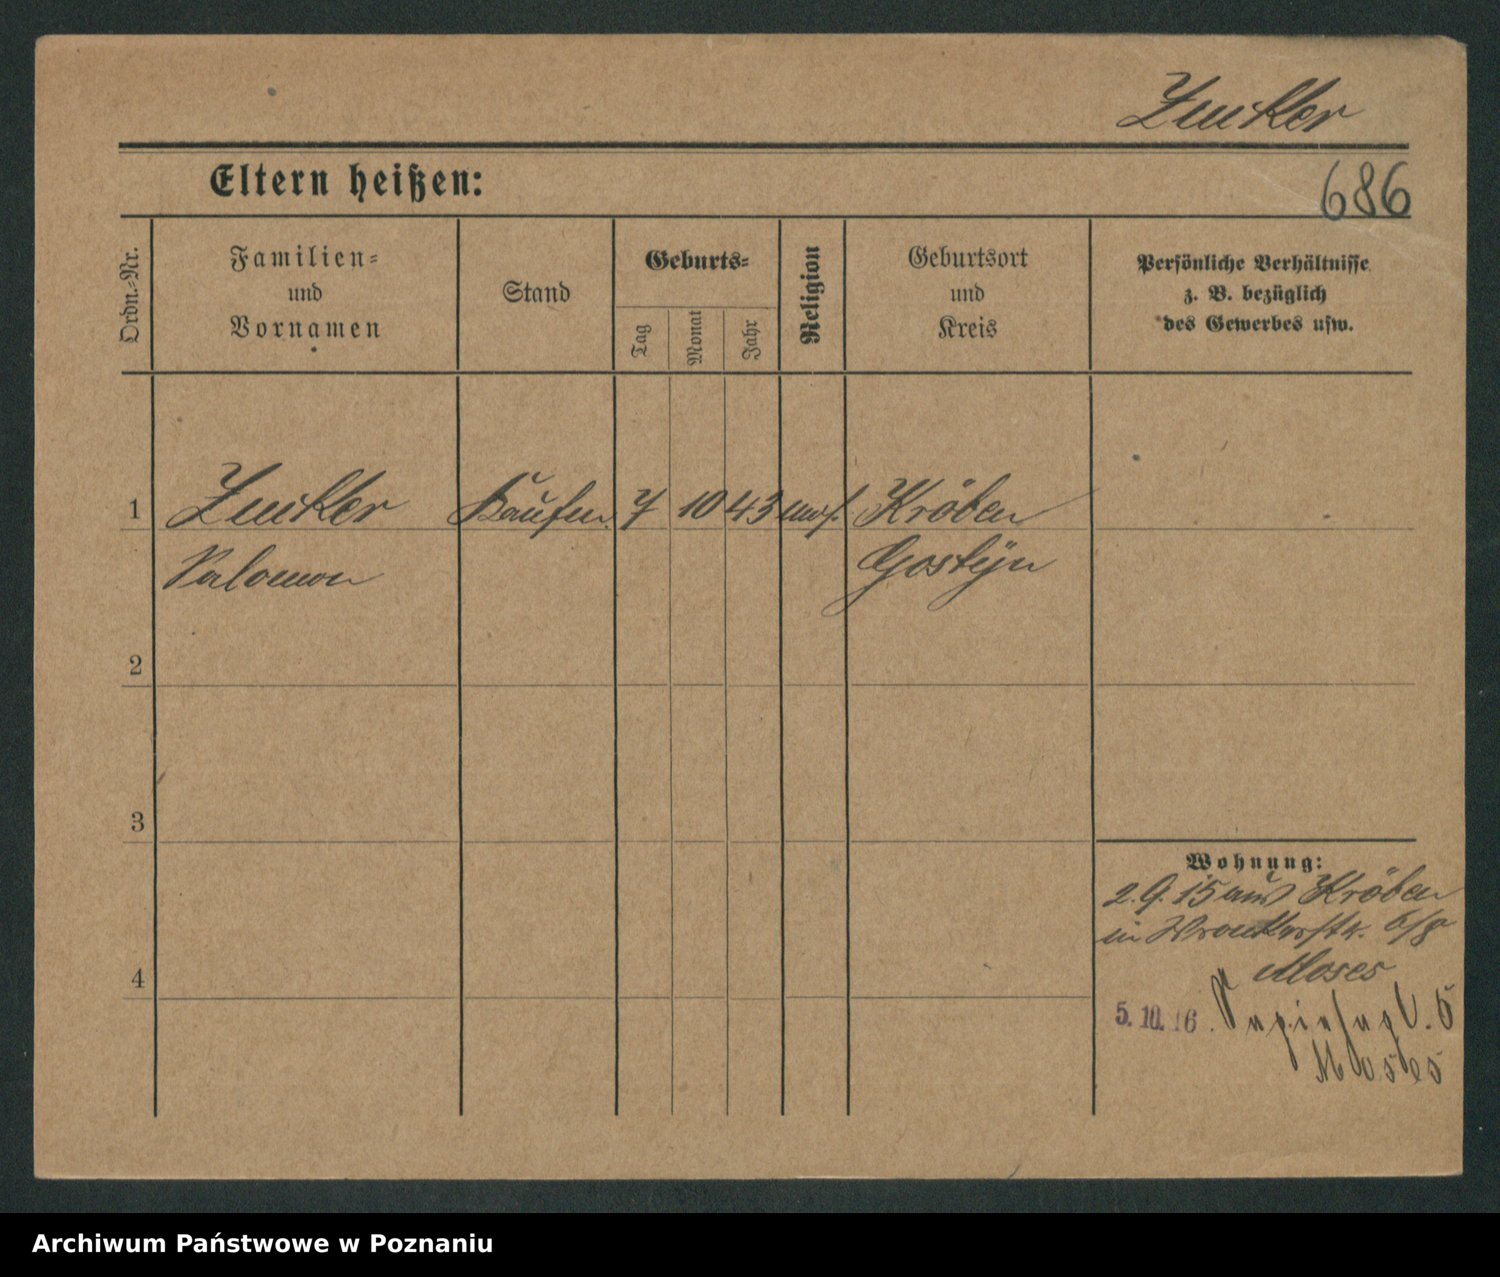 Zucker
Eltern heißen:
686
Ordn.-Nr.
Familien-
und
Vornamen
Stand
Geburts-
Tag
Monat
Jahr
Religion
Geburtsort
und
Kreis
Persönliche Verhältnisse
z. B. bezüglich
des Gewerbes usw.
1
Zucker
Kaufm.
7
10
43
mos.
Kröben
Salomon
Gostyn
2
3
4
Wohnung:
2.9.15 aus Kröben
in Wronkerstr. 6/8
Moses
5.10.16. Sapiehapl. 5
Moses
Archiwum Państwowe w Poznaniu